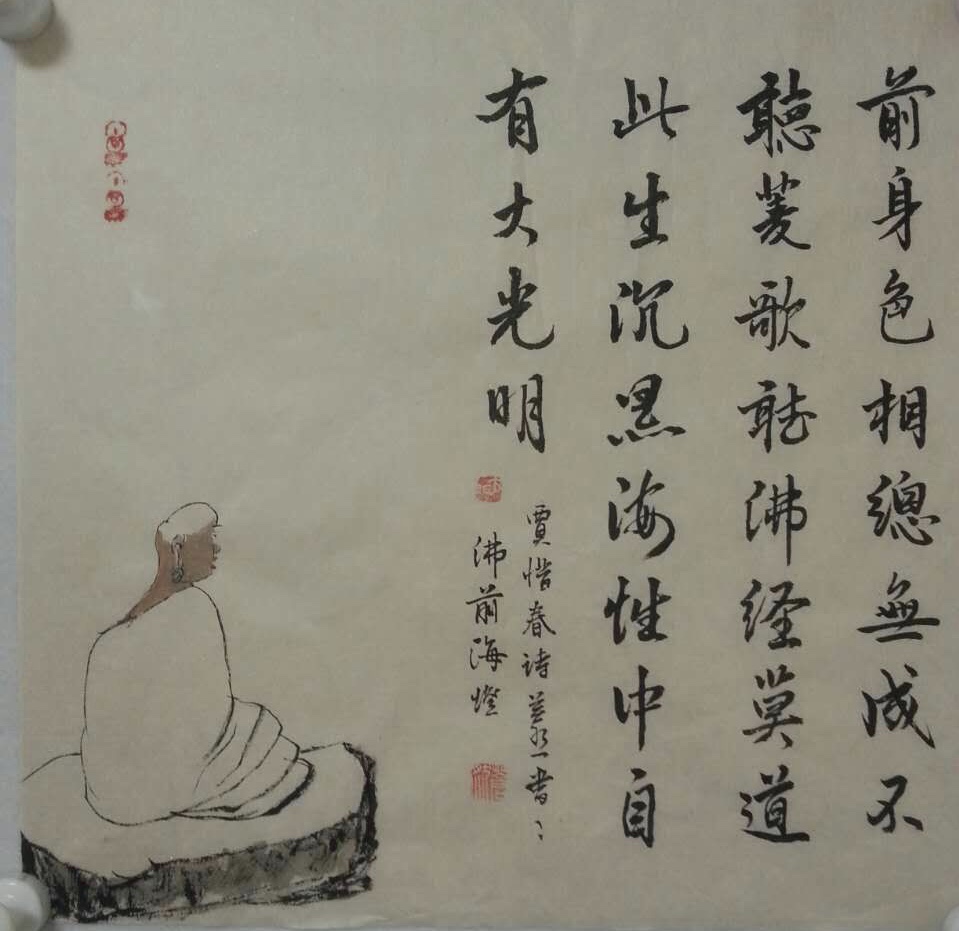 前身色相總無成不
聽菱歌聽佛經莫道
此生沉黑海性中自
有大光明
賈惜春詩書
佛前海燈